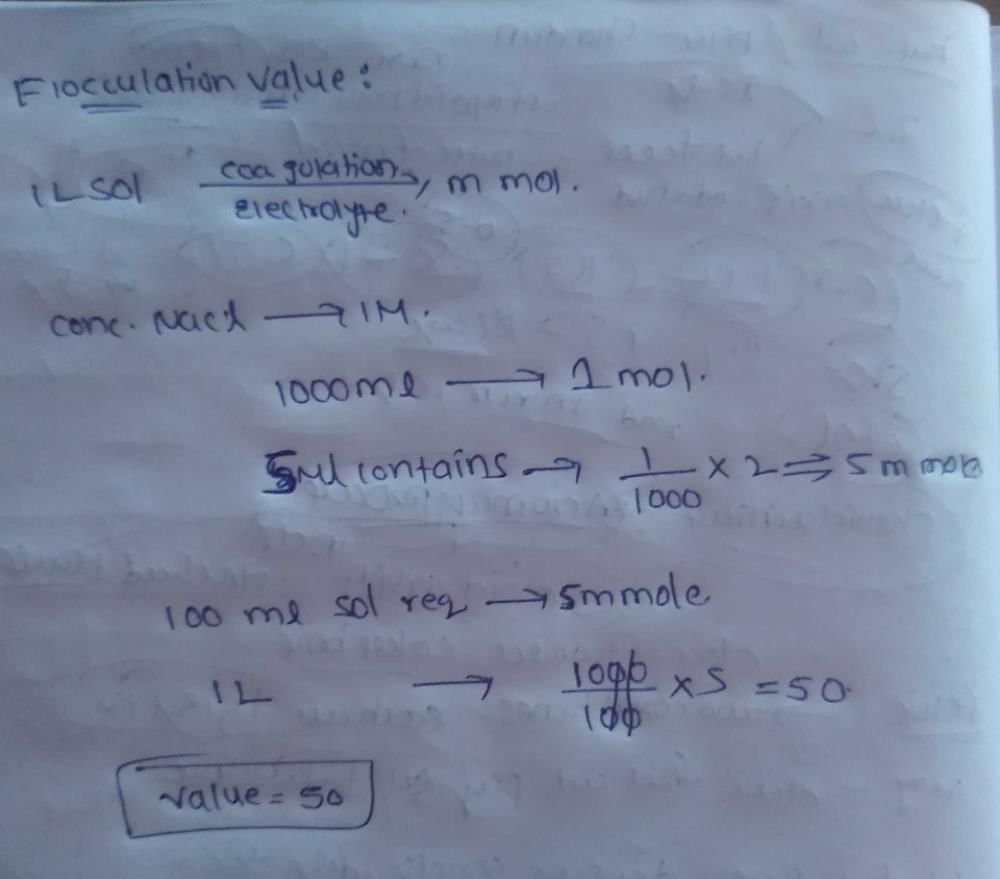 Flocculation Value:
1L sol coagulation, m mol.
electrolyte.
conc. Nacl → 1M.
1000 ml → 1 mol.
5ml contains → 1/1000 × 2 ⇒ 5 m mole
100 ml sol req → 5mmole
1L → 1000/100 × 5 = 50.
Value = 50